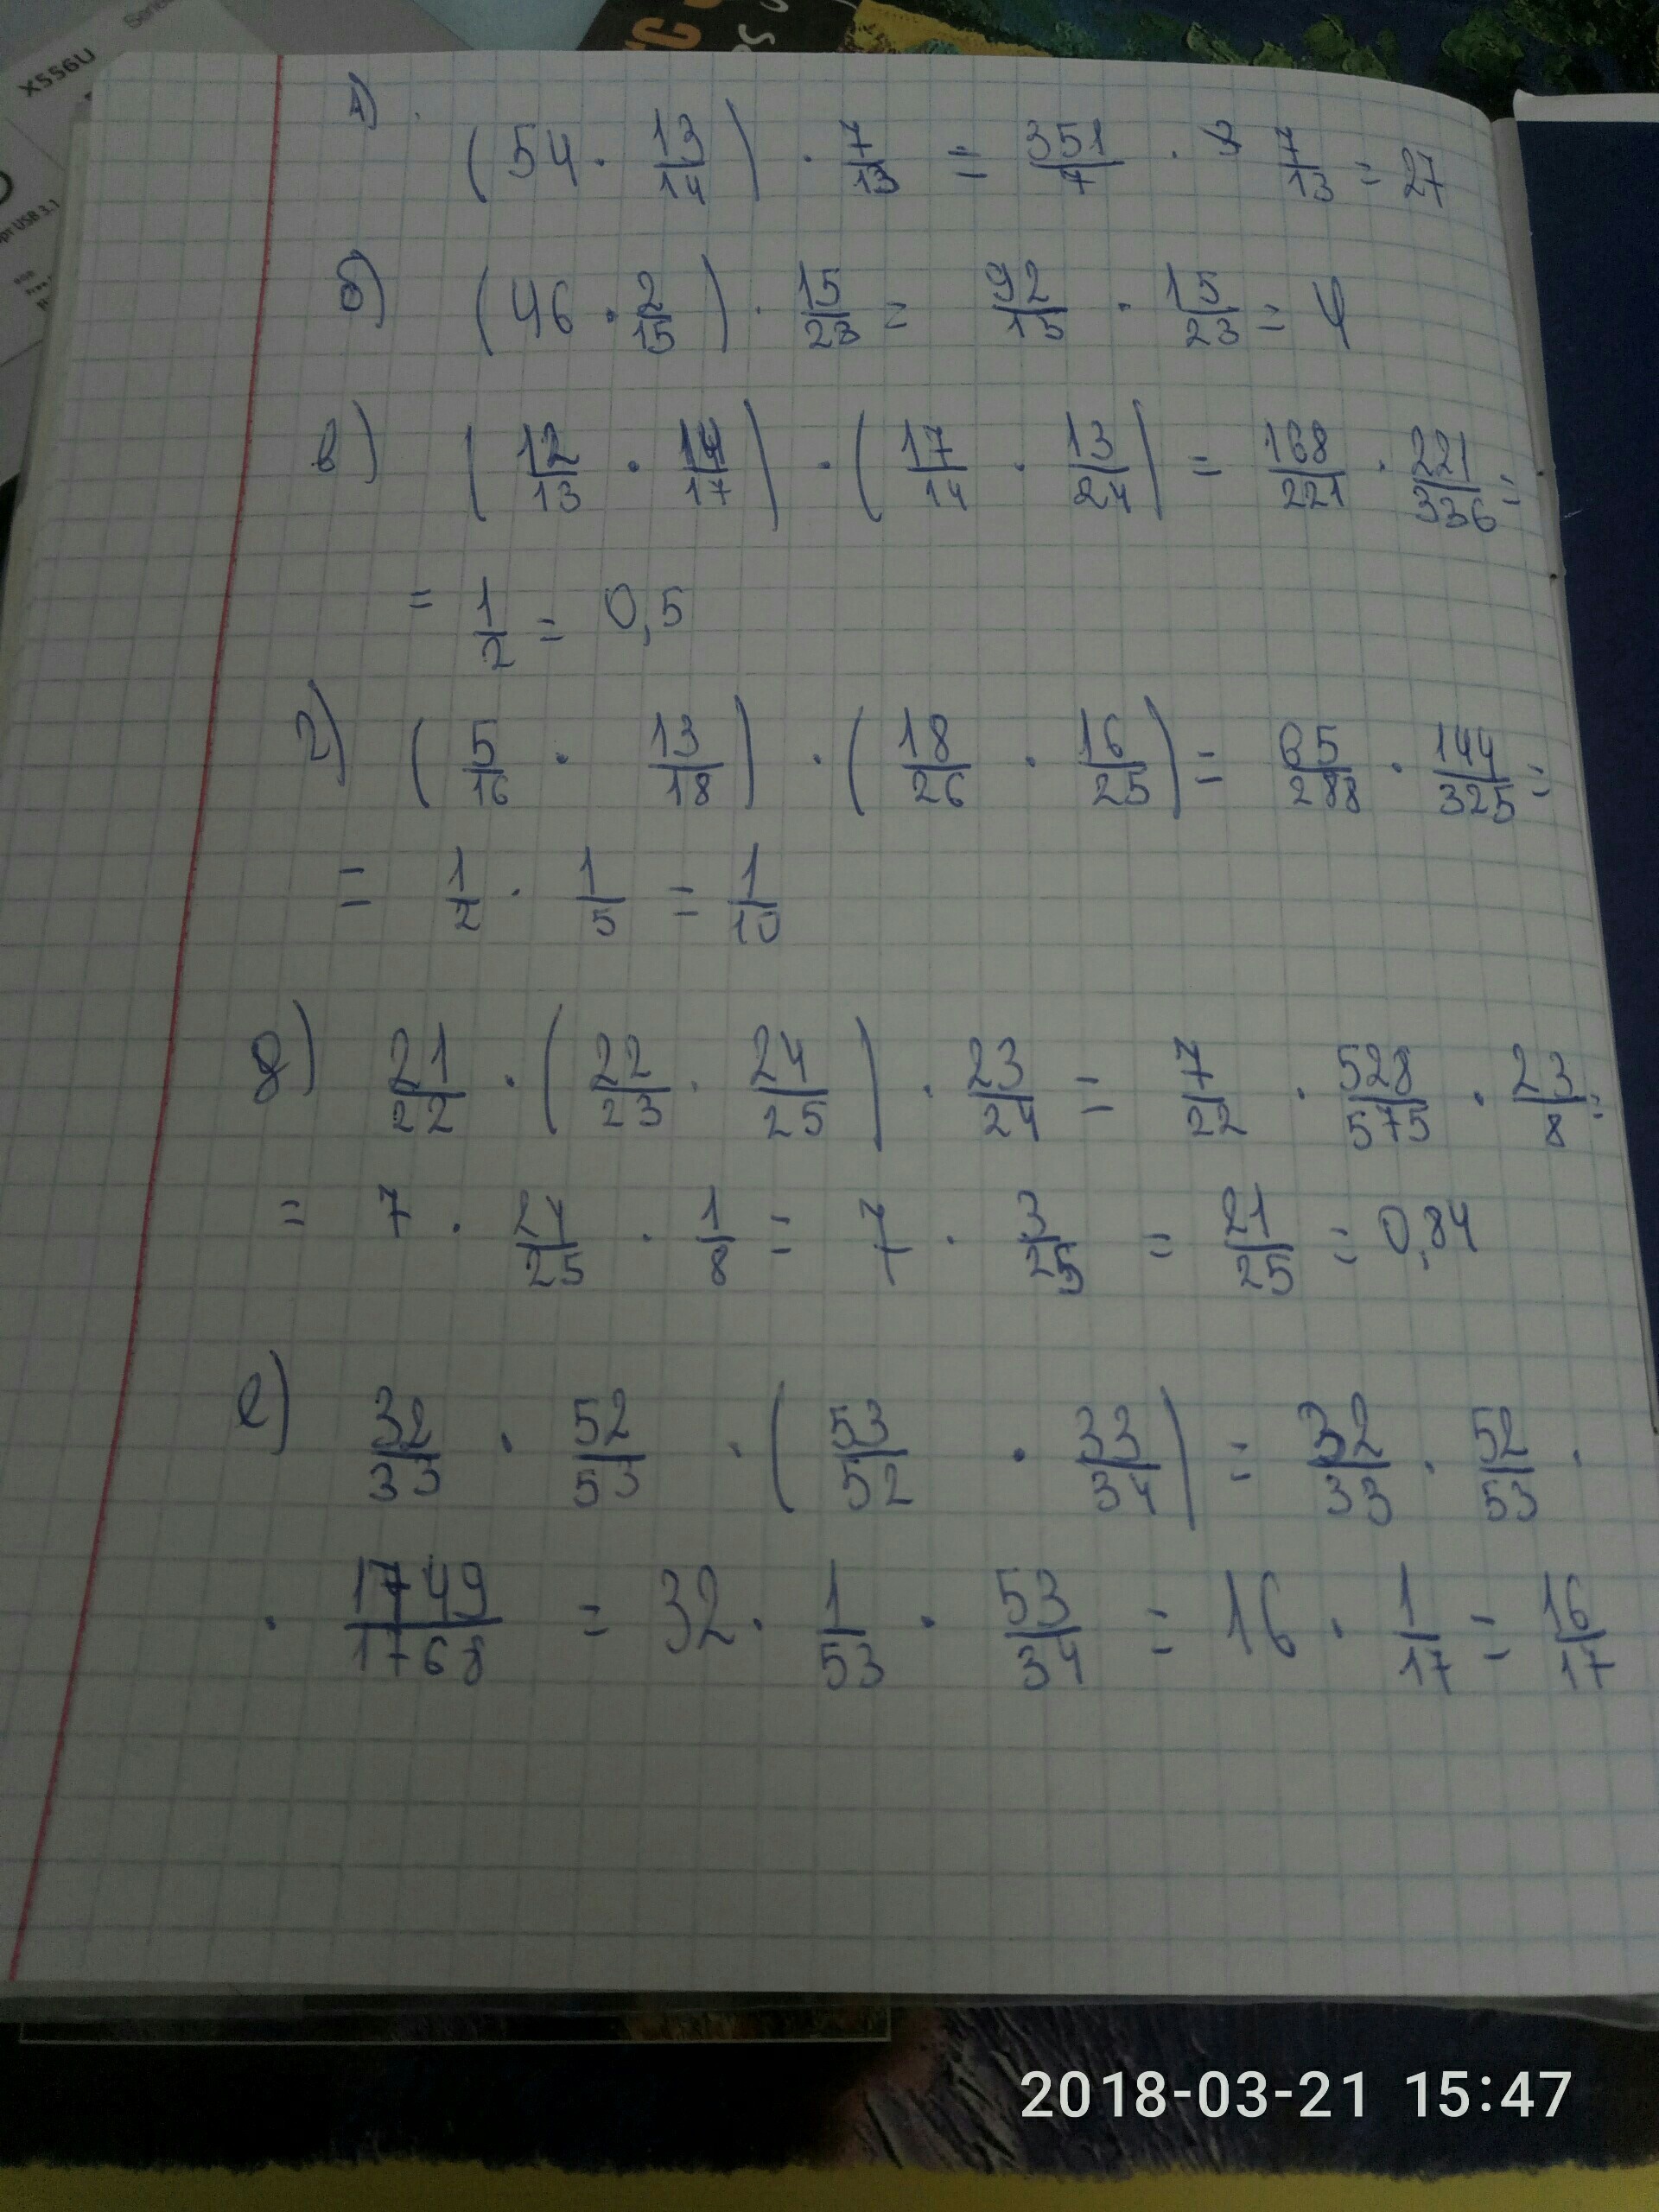 X556U
1) (54 · 13/14) · 7/13 = 351/7 · 7/13 = 27
б) (46 · 2/15) · 15/23 = 92/15 · 15/23 = 4
в) (12/13 · 14/17) · (17/14 · 13/24) = 168/221 · 221/336 =
= 1/2 = 0,5
г) (5/16 · 13/18) · (18/26 · 16/25) = 65/288 · 144/325 =
= 1/2 · 1/5 = 1/10
д) 21/22 · (22/23 · 24/25) · 23/24 = 7/22 · 528/575 · 23/8 =
= 7 · 24/25 · 1/8 = 7 · 3/25 = 21/25 = 0,84
е) 32/33 · 52/53 · (53/52 · 33/34) = 32/33 · 52/53 ·
· 1749/1768 = 32 · 1/53 · 53/34 = 16 · 1/17 = 16/17
2018-03-21 15:47